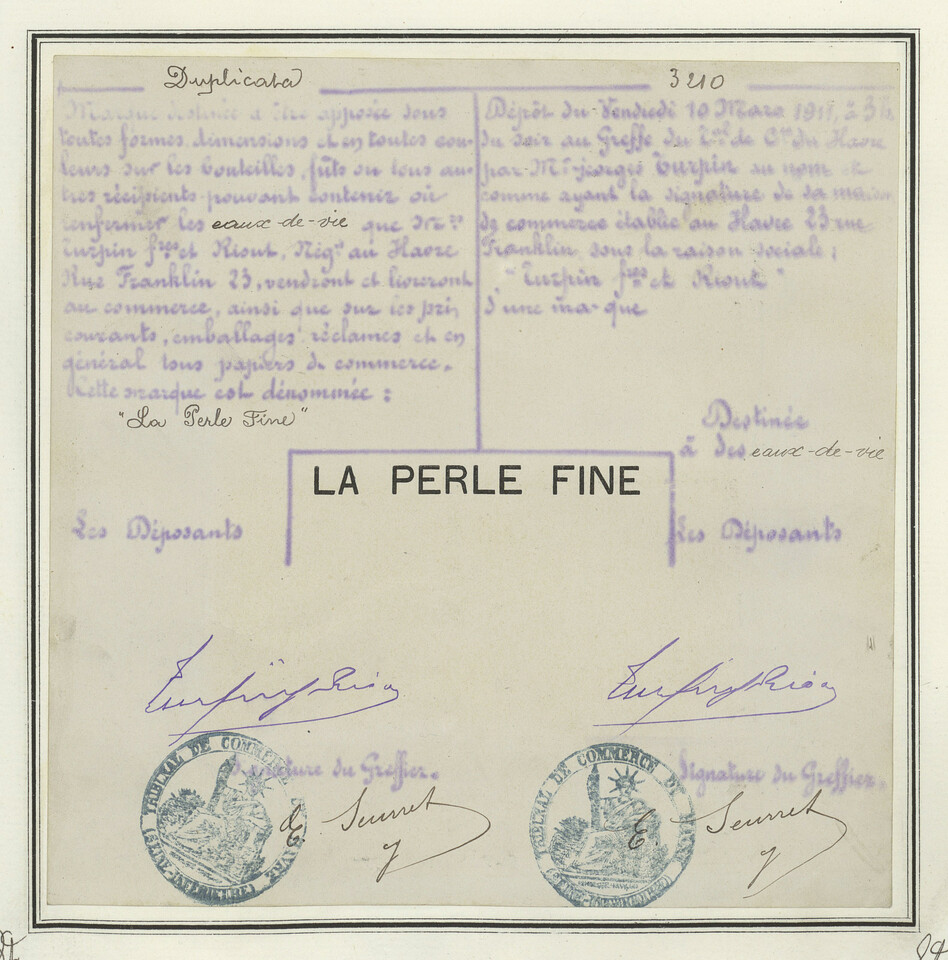 Duplicata
Marque destinée à être apposée sous
toutes formes, dimensions et en toutes cou-
leurs sur les bouteilles, fûts ou tous au-
tres récipients pouvant contenir où
renfermer les eaux-de-vie que MM.rs
Turpin fres et Rioult, Négts au Havre
Rue Franklin 23, vendront et livreront
au commerce, ainsi que sur les prix
courants, emballages réclames et en
général tous papiers de commerce.
Cette marque est dénommée :
"La Perle Fine"
3210
Dépôt du Vendredi 10 Mars 1911, à 3h
du soir au Greffe du Tral de Cce du Havre
par Mr georges Turpin au nom et
comme ayant la signature de sa maison
de commerce établie au Havre 23 rue
Franklin sous la raison sociale ;
"Turpin fres et Rioult"
d'une marque
Destinée
à des eaux-de-vie
LA PERLE FINE
Les Déposants
Les Déposants
Signature du Greffier.
Signature du Greffier.
TRIBUNAL DE COMMERCE DU HAVRE
TRIBUNAL DE COMMERCE DU HAVRE